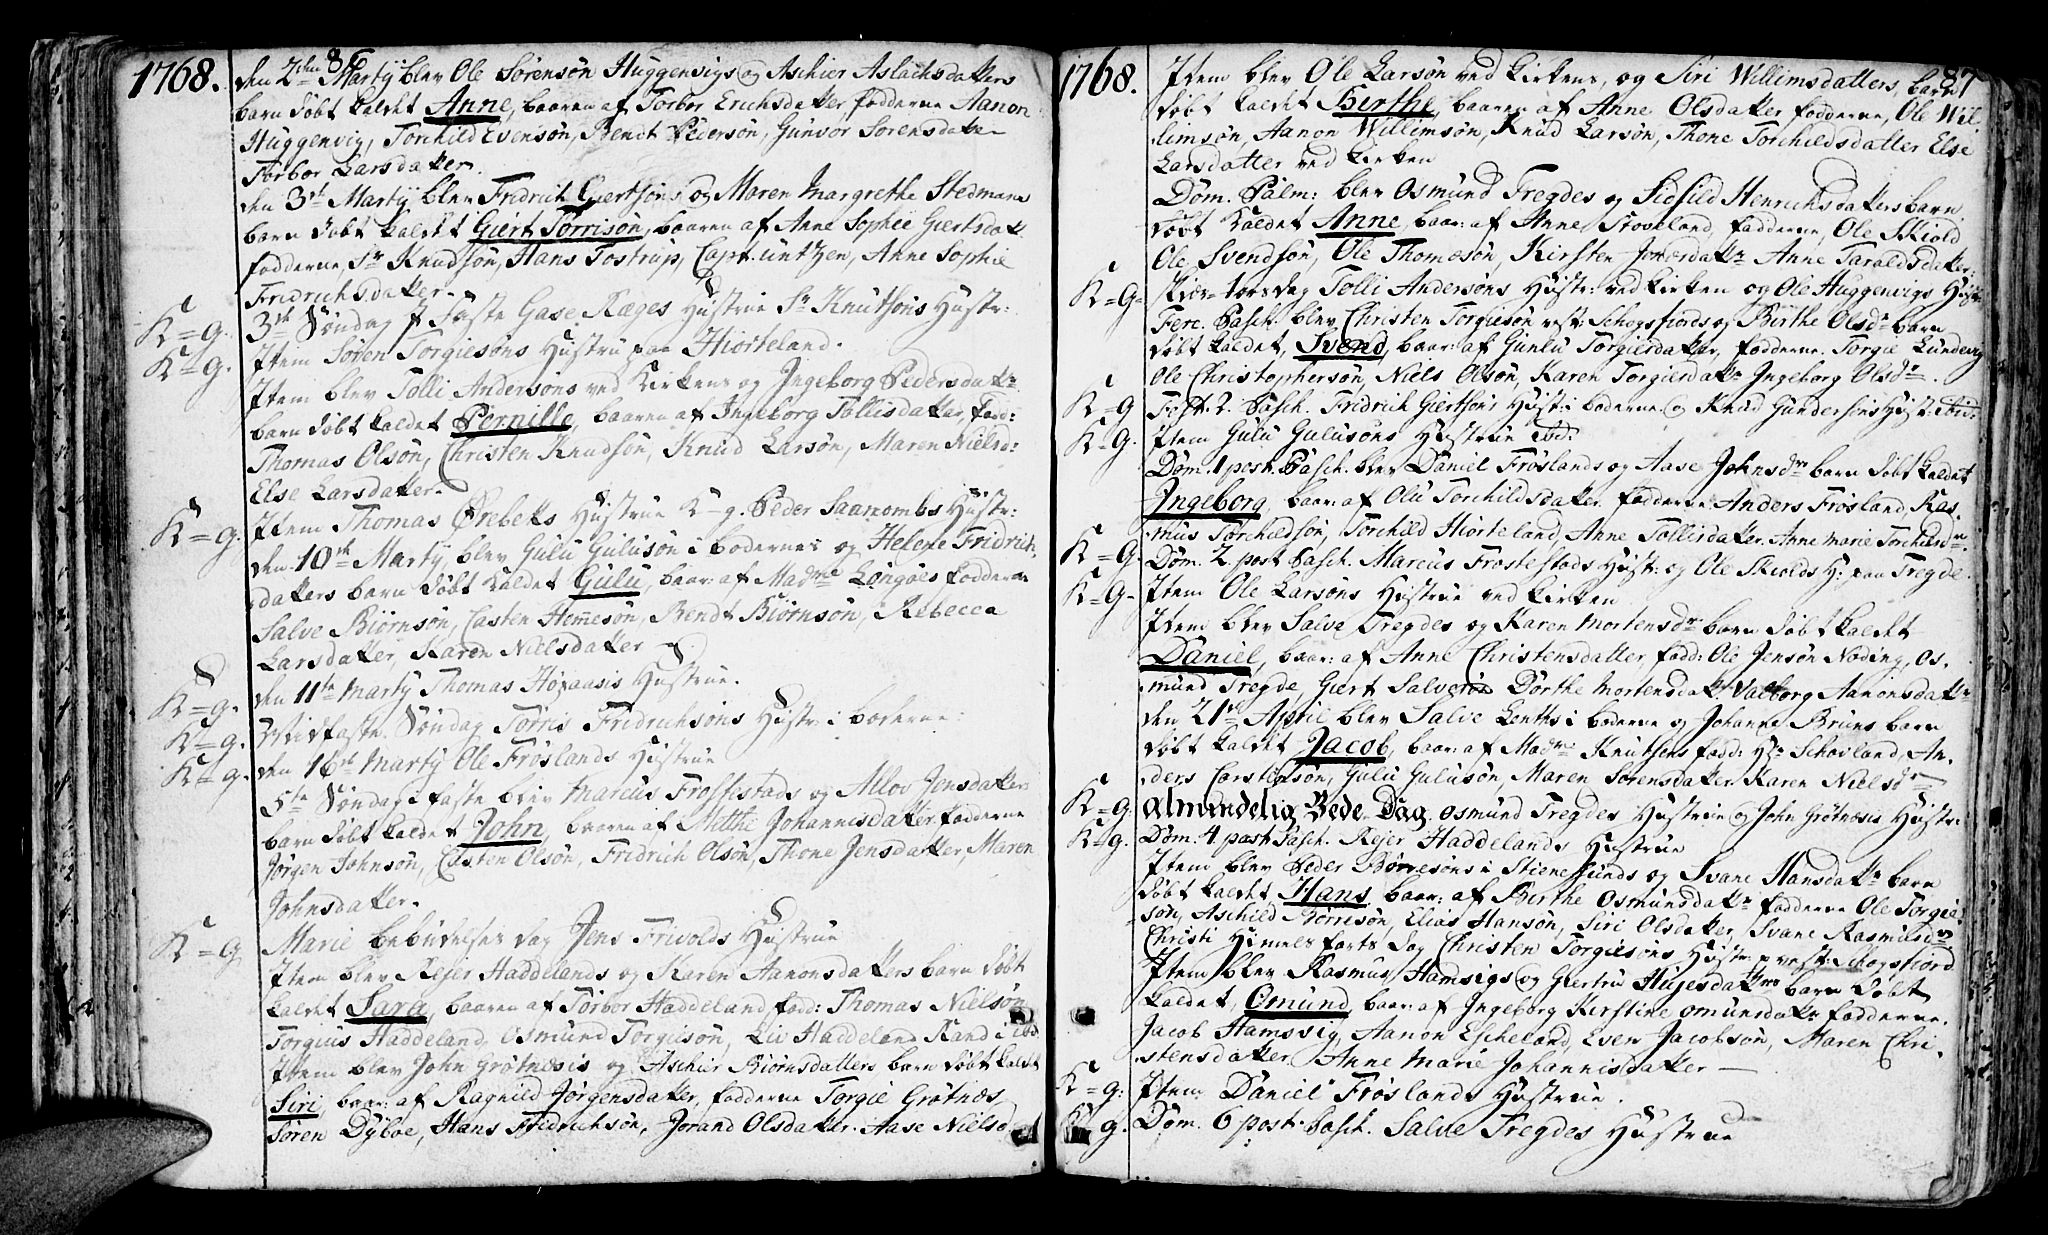 86
1768. den 2den Martij blev Ole Sørensøn Huggenvigs og Aschier Aslachsdatters
barn døbt kaldet Anne, baaren af Torbor Erichsdatter, fadderne Aanon
Huggenvig, Torchild Evensøn, Bendt Pedersøn, Gunvor Sørensdatter
Torbor Larsdatter.
den 3de Martij blev Fridrich Giertsøns og Maren Margrethe Stedmans
barn døbt kaldet Giert Tørrisøn, baaren af Anne Sophie Giertsdatt.
fadderne, Sr Knudsøn, Hans Tostrup, Capt. untzen, Anne Sophie
Fridrichsdatter.
K=g. 3de Søndag i Faste Gase Ræges Hustrue Sr Knutsons Hustr:
K=g. Item Søren Torgiesøns Hustru paa Hiorteland.
Item blev Tolli Andersøns ved Kirkens og Ingeborg Pedersdatr
barn døbt kaldet Pernille, baaren af Ingeborg Tollisdatter, fadd:
Thomas Olsøn, Christen Knudsøn, Knud Larsøn, Maren Nielsd:
Else Larsdatter.
K=g. Item Thomas Ørebeks Hustrue K=g. Peder Saanombs Hustr:
den 10de Martij blev Gulu Gulusøn i bodernes og Helene Fridrich
sdatters barn døbt kaldet Gulu, baar: af Madme Longoes fadderne
Salve Biørnsøn, Casten Hemmesøn, Bendt Biørnsøn, Rebecca
Larsdatter, Karen Nielsdatter
K=g. den 11te Martij Thomas Høyaasis Hustrue.
K=g. Midfaste Søndag Tørris Fridrichsøns Hustr: i boderne:
K=g. den 16de Martij Ole Frøslands Hustrue
5te Søndag i faste blev Marcus Frossestads og Allov Jensdatters
barn døbt kaldet John, baaren af Mette Johannisdatter fadderne
Jørgen Johnsøn, Casten Olsøn, Fridrich Olsøn, Thone Jensdatter, Maren
Johnsdatter.
K=g Mariæ bebudelses dag Jens Frivolds Hustrue
Item blev Rejer Haddelands og Karen Aanonsdatters barn døbt
kaldet Sara, baaren af Torbor Haddeland, fadd: Thomas Nielsøn
Torgius Haddeland, Osmund Torgilsøn, Liv Haddeland Rand i ibd
Item blev John Grøtnæsis og Aschier Biørnsdatters barn døbt kaldt
Siri, baar: af Ragnild Jørgensdatter, fadderne Torgie Grøtnæs
Søren Dyboe, Hans Fridrichsøn, Jorand Olsdatter. Aase Nielsd
87
1768. Item blev Ole Larsøn ved Kirkens, og Siri Willimsdatters, barn
døbt kaldet Birthe, baaren af Anne Olsdatter fadderne, Ole Wil-
limsøn, Aanon Willimsøn, Knud Larsøn, Thone Torchildsdatter Else
Larsdatter ved Kirken
Dom. Palm: blev Osmund Tregdes og Sidsild Henrichsdatters barn
døbt kaldet Anne, baar: af Anne Stoveland, fadderne, Ole Skiold
Ole Svendsøn, Ole Thomæsøn, Kirsten Joversdatr Anne Taraldsdatter:
K=g= Skiær=torsdag Tolli Andersøns Hustr: ved Kirken og Ole Huggenvigs Hustr:
Ferc. Pasch. blev Christen Torgiesøn vest: Schogsfiords og Birthe Olsdr barn
døbt kaldet, Svend, baar: af Gunlu Torgiersdatter, fadderne. Torgie Lundevig
Ole Christophersøn, Niels Olsøn, Karen Torgiersdatr Ingeborg Olsdr.
K=g Fest. 2. Pasch. Fridrich Giertsøns Hustr: i boderne og Knud Gundersøns Hust: ibid:
K=g. Item Gulu Gulusøns Hustrue ibd:
Dom. 1 post Pasch. blev Daniel Frøslands og Aase Johnsdr barn døbt kaldet
Ingeborg, baar: af Olu Torchildsdatter. fadderne Anders Frøsland, Ras-
mus Torchildsøn, Torchild Hiorteland, Anne Tollisdatter. Anne Marie Torchildsdr.
K=g. Dom. 2. post Pasch. Marcus Frostestads Hustr: og Ole Skiolds H: paa Tregde.
K=g= Item Ole Larsøns Hustrue ved Kirken
Item blev Salve Tregdes og Karen Mortensdr barn døbt kaldet
Daniel, baar: af Anne Christensdatter, fadd: Ole Jensøn Noding, Os-
mund Tregde, Giert Salvesøn Dorthe Mortensdatr Valborg Aanonsdatr
den 21de April blev Salve Lenths i boderne og Johanne Bruns barn
døbt kaldet Jacob, baar: af Madme Knutsens fadd: Hr Schovland, An-
ders Carstensøn, Gulu Gulusøn, Maren Sørensdatter Karen Nielsdr
K=g. Almindelig Bede Dag. Osmund Tregdes Hustrue og John Grøtnæsis Hustr:
K=g. Dom. 4. post Pasch. Rejer Haddelands Hustrue
Item blev Peder Børresøns i Stienesunds og Svane Hansdatr barn
døbt kaldet Hans, baar: af Birthe Osmunsdatr fadderne Ole Torgie-
søn, Aschild Børresøn, Elias Hansøn, Siri Olsdatter, Svane Rasmusdr
Christi Himmelfarts dag Christen Torgiesøns Hustr: vest: Schogsfiord
Item blev Rasmus Hamsvigs og Giertru Hugesdatrs barn døbt
kaldet, Omund, baar: af Ingeborg Kirstine Omunsdatr fadderne.
Jacob Hamsvig, Aanon Escheland, Even Jacobsøn, Maren Chri-
stensdatter Anne Marie Johannisdatter
K=g: Item Daniel Frøslands Hustrue.
K=g. Dom. 6 post Pasch. Salve Tregdes Hustrue